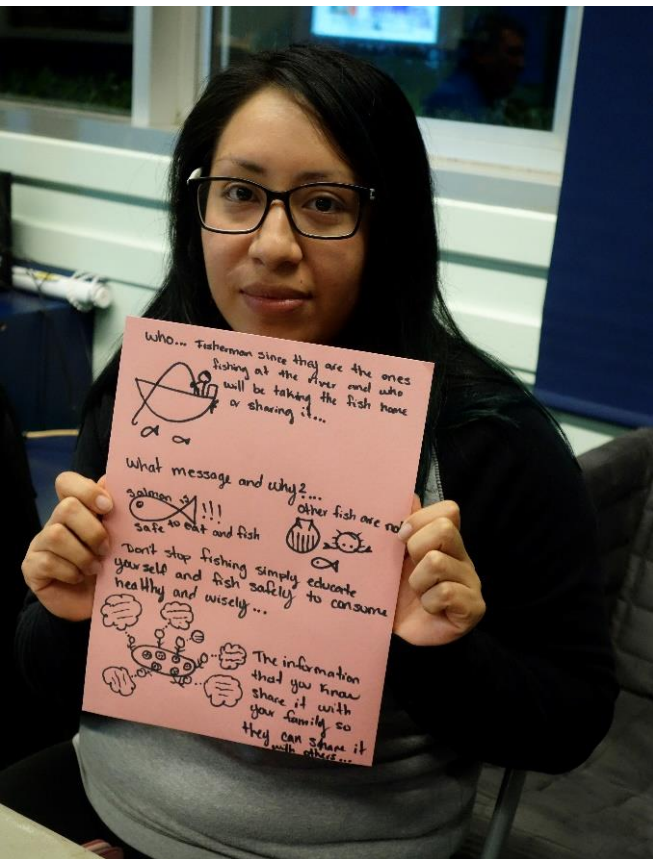 who... Fisherman since they are the ones
fishing at the river and who
will be taking the fish home
or sharing it...
What message and why?...
salmon
!!!
safe to eat and fish
other fish are not
Don't stop fishing simply educate
yourself and fish safely to consume
healthy and wisely...
The information
that you know
share it with
your family so
they can share it
with others...